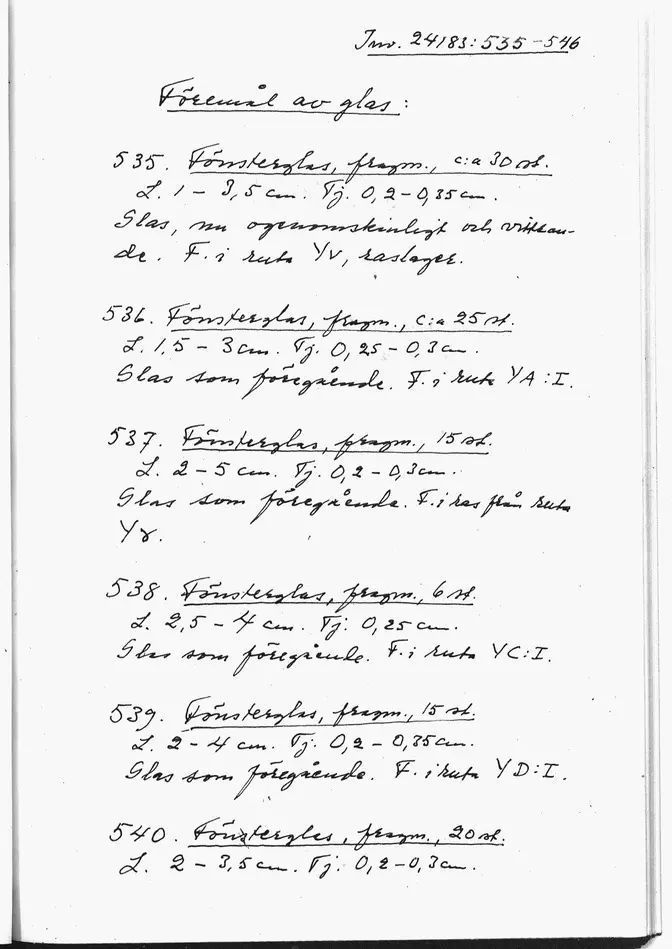 Inv. 24183:535-546
Föremål av glas:
535. Fönsterglas, fragm., c:a 30 st.
L. 1 - 3,5 cm. Tj. 0,2-0,35 cm.
Glas, nu ogenomskinligt och vittran-
de. F. i ruta YV, raslager.
536. Fönsterglas, fragm., c:a 25 st.
L. 1,5 - 3 cm. Tj. 0,25 - 0,3 cm.
Glas som föregående. F. i ruta YA:I.
537. Fönsterglas, fragm., 15 st.
L. 2 - 5 cm. Tj. 0,2 - 0,3 cm.
Glas som föregående. F. i ras från ruta
538. Fönsterglas, fragm., 6 st.
L. 2,5 - 4 cm. Tj. 0,25 cm.
Glas som föregående. F. i ruta YC:I.
539. Fönsterglas, fragm., 15 st.
L. 2 - 4 cm. Tj. 0,2 - 0,35 cm.
Glas som föregående. F. i ruta YD:I.
540. Fönsterglas, fragm., 20 st.
L. 2 - 3,5 cm. Tj. 0,2-0,3 cm.